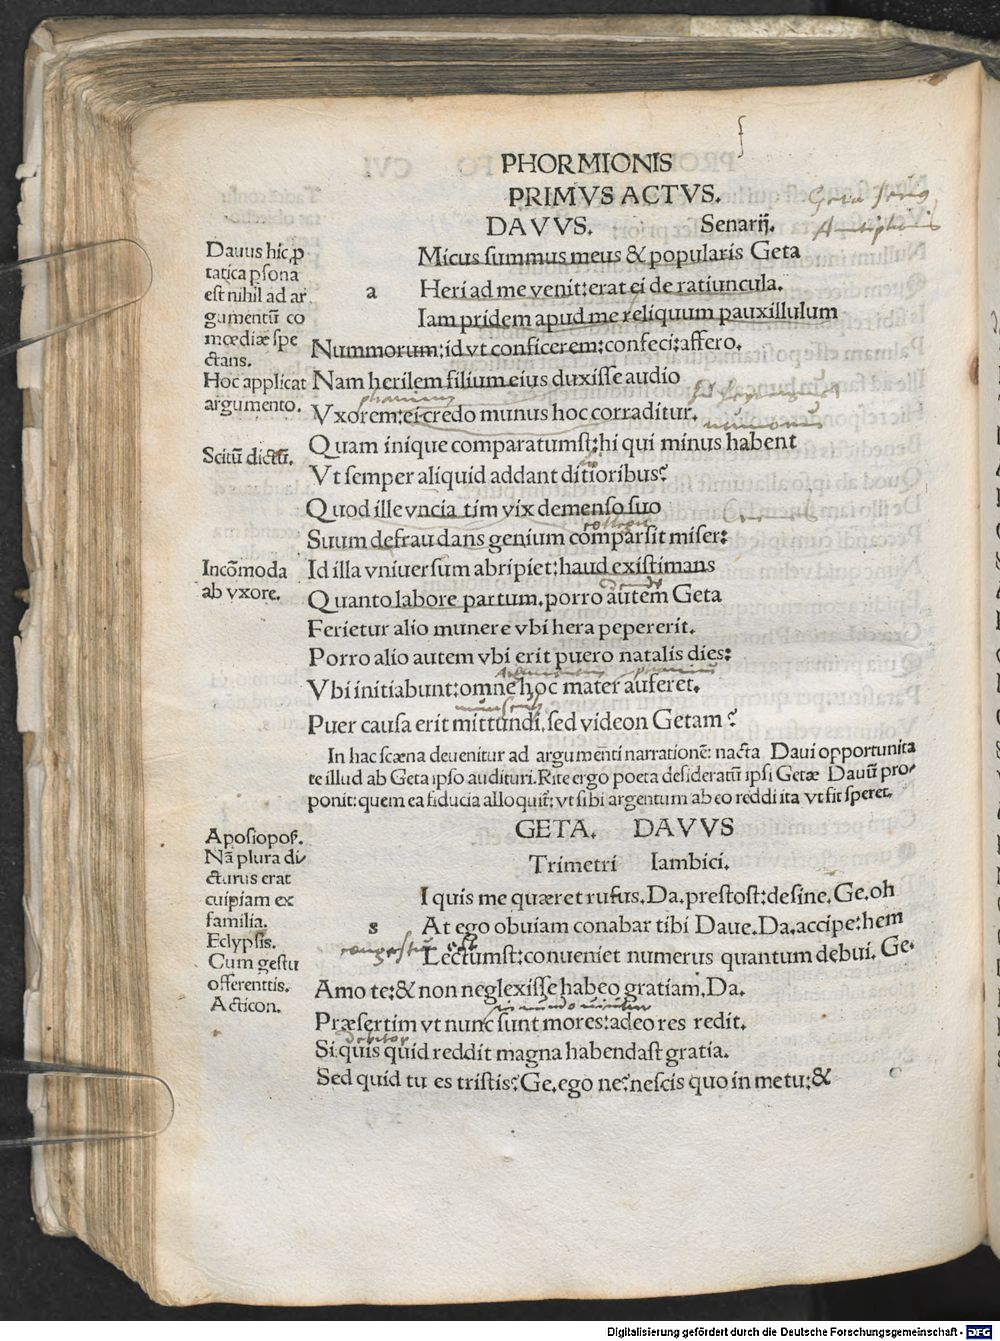 PHORMIONIS
PRIMVS ACTVS.
DAVVS. Senarij.
Geta seruus
Antiphonis
Dauus hic, p
tatica psona
est nihil ad ar
gumentũ co
mœdiæ spe
ctans.
Hoc applicat
argumento.
Scitũ dictũ.
Incõmoda
ab vxore.
a
Micus summus meus & popularis Geta
Heri ad me venit: erat ei de ratiuncula.
Iam pridem apud me reliquum pauxillulum
Nummorum: id vt conficerem: confeci: affero.
Nam herilem filium eius duxisse audio
Vxorem: ei credo munus hoc corraditur.
Quam inique comparatumst: hi qui minus habent
Vt semper aliquid addant ditioribus?
Quod ille vncia tim vix demenso suo
Suum defraudans genium comparsit miser:
Id illa vniuersum abripiet: haud existimans
Quanto labore partum. porro autem Geta
Ferietur alio munere vbi hera pepererit.
Porro alio autem vbi erit puero natalis dies:
Vbi initiabunt: omne hoc mater auferet.
Puer causa erit mittundi. sed videon Getam?
In hac scæna deuenitur ad argumenti narrationẽ: nacta Daui opportunita
te illud ab Geta ipso audituri. Rite ergo poeta desideratũ ipsi Getæ Dauũ pro/
ponit: quem ea fiducia alloquit̃: vt sibi argentum ab eo reddi ita vt fit speret.
GETA. DAVVS
Trimetri Iambici.
Aposiopos̃.
Nã plura di/
cturus erat
cuipiam ex
familia.
Eclypsis.
Cum gestu
offerentis.
Acticon.
s
I quis me quæret rufus. Da. prestost: desine. Ge. oh
At ego obuiam conabar tibi Daue. Da. accipe: hem
congestum est
Lectumst: conueniet numerus quantum debui. Ge.
Amo te: & non neglexisse habeo gratiam. Da.
Præsertim vt nunc sunt mores: adeo res redit.
debitor
Si quis quid reddit magna habendast gratia.
Sed quid tu es tristis? Ge. ego ne? nescis quo in metu: &
Digitalisierung gefördert durch die Deutsche Forschungsgemeinschaft - DFG